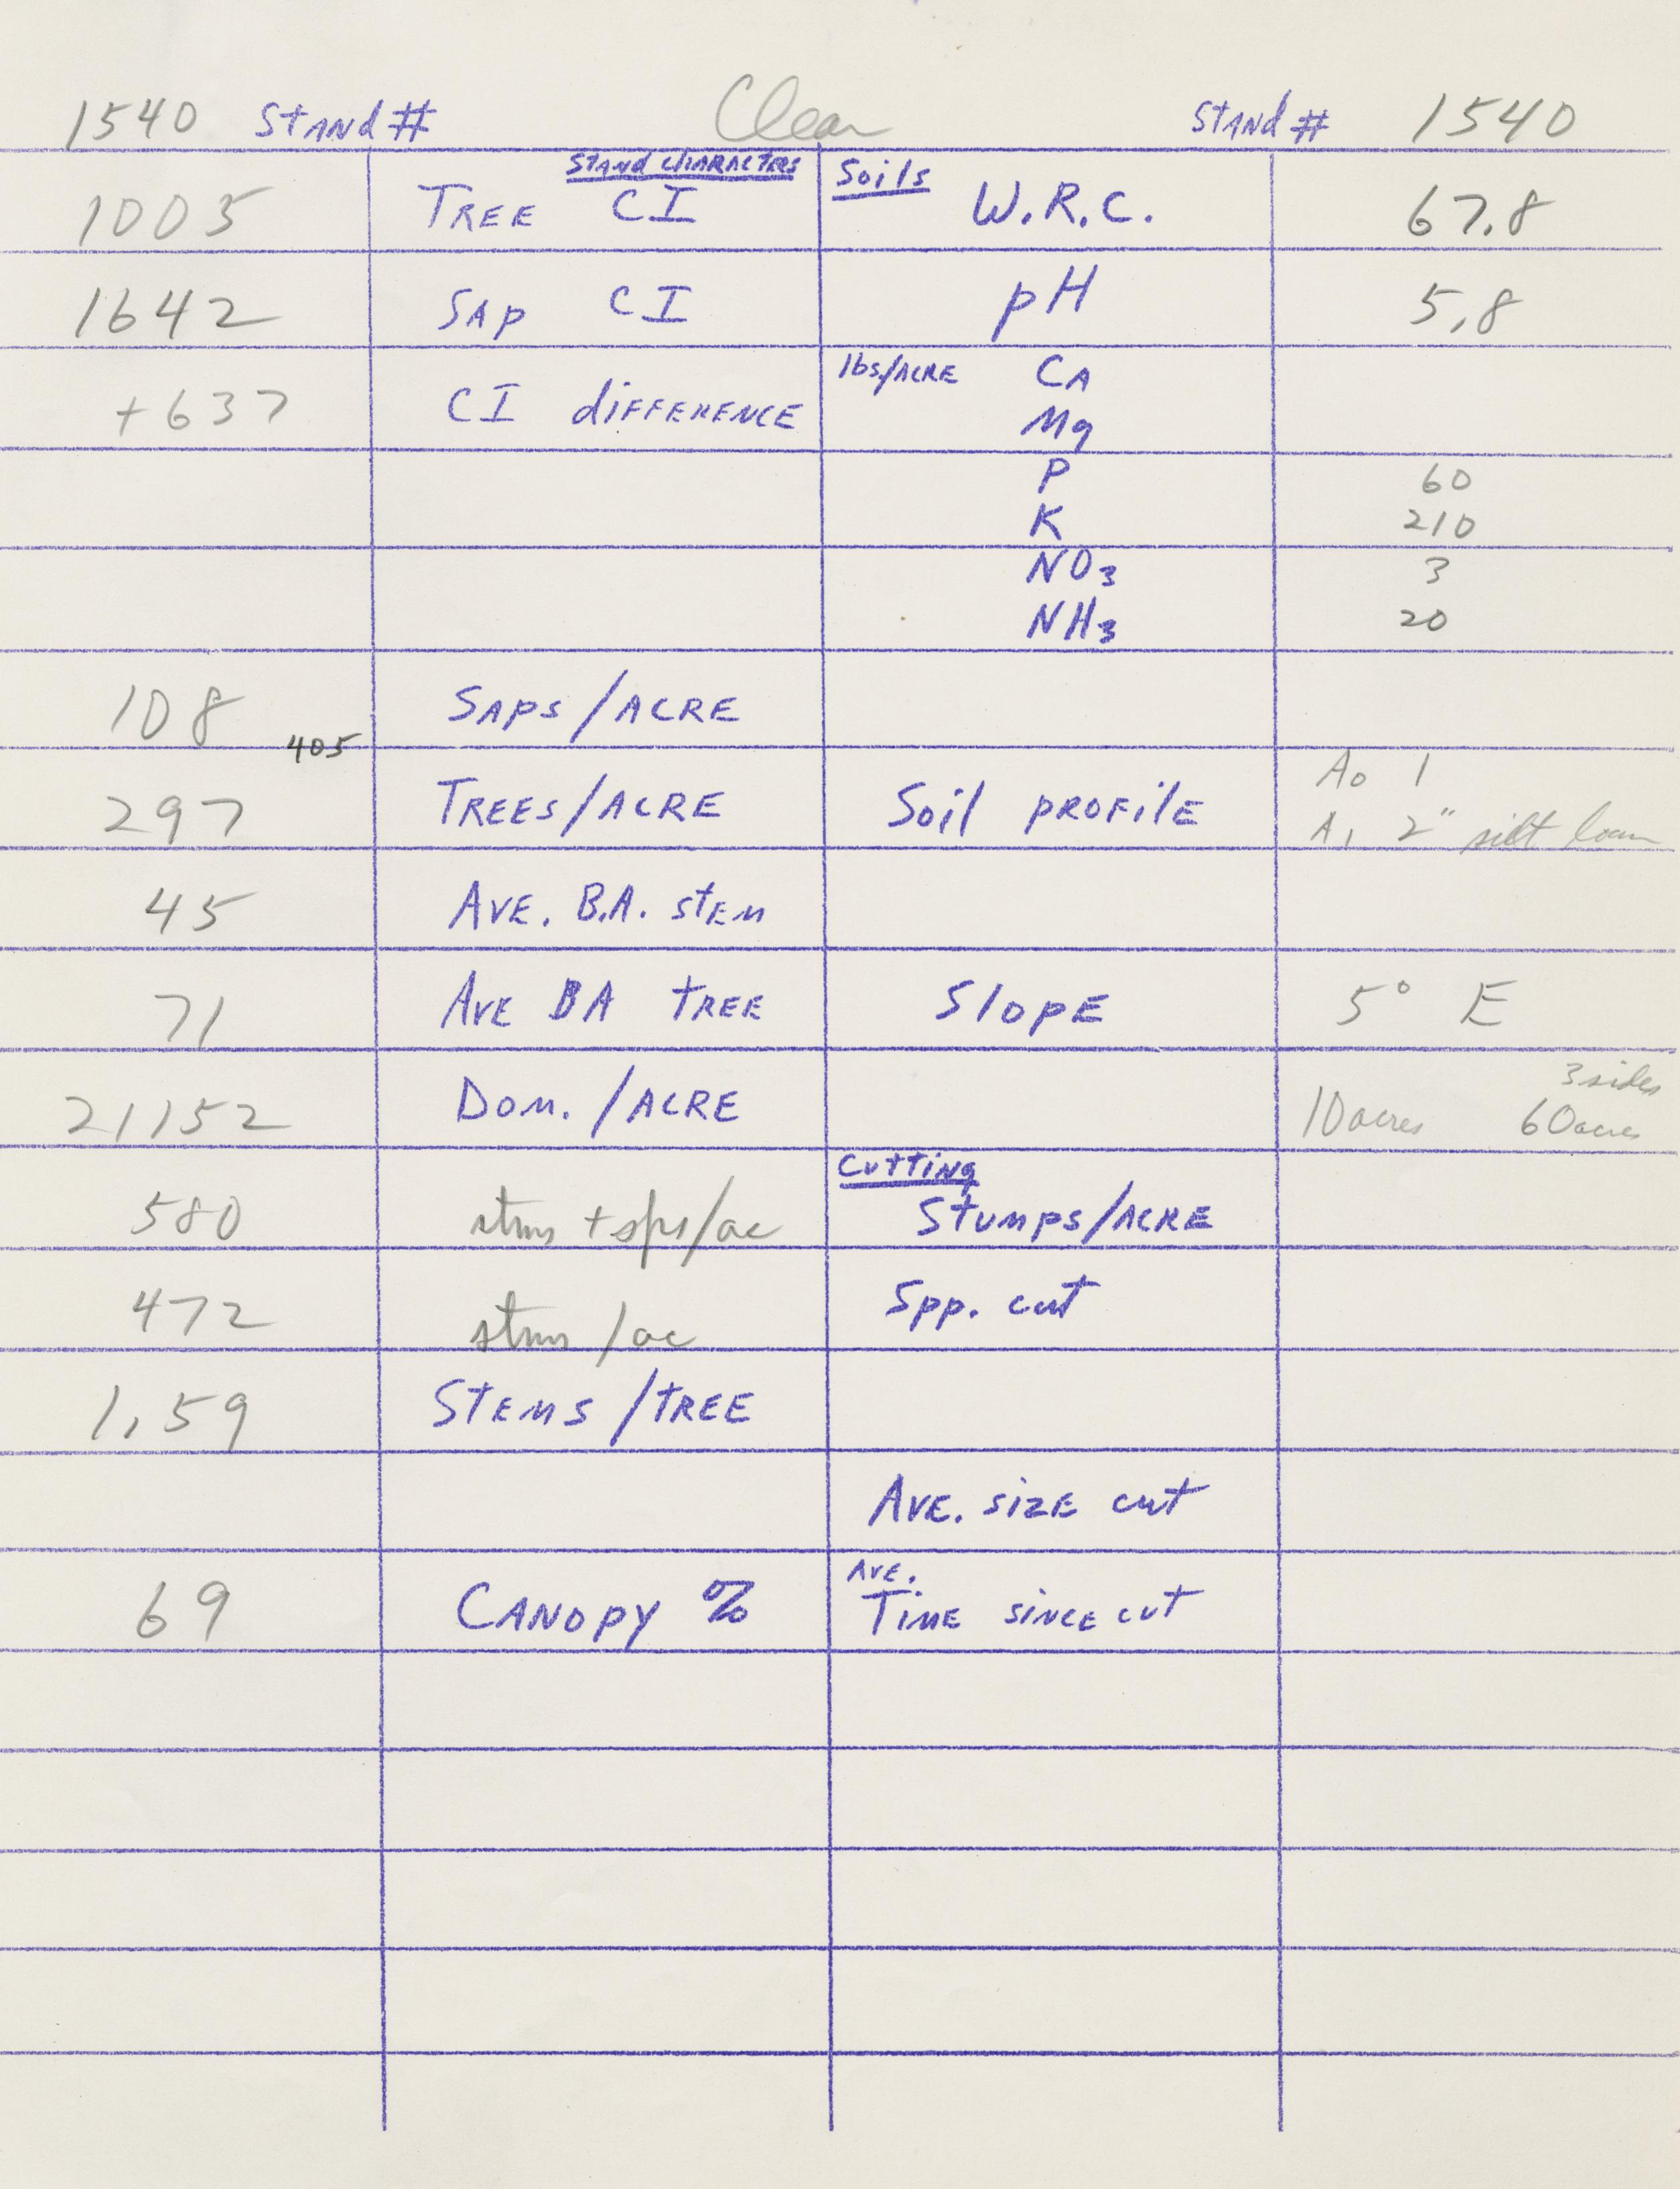 1540 Stand # Clear Stand # 1540
Stand Characters Soils
1005 Tree CI W.R.C. 67.8
1642 Sap CI pH 5.8
lbs/Acre Ca
+637 CI difference Mg
P 60
K 210
NO3 3
NH3 20
108 Saps/Acre
405
Ao 1
297 Trees/Acre Soil profile A1 2" silt loam
45 Ave. B.A. stem
71 Ave BA tree Slope 5° E
3 sides
21152 Dom./Acre 10 acres 60 acres
Cutting
580 stms + sps/ac Stumps/Acre
472 stms/ac Spp. cut
1.59 Stems/tree
Ave. size cut
Ave.
69 Canopy % Time since cut